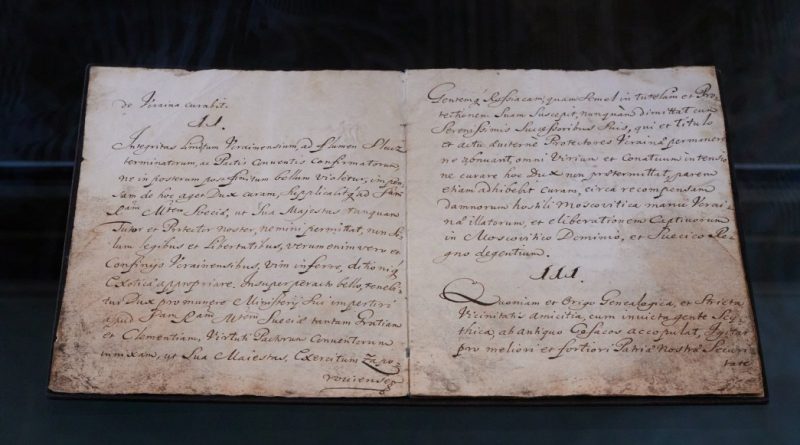 de Vcraina curabit.
II.
Integritas Limitum Vcrainensium, ad flumen Slucz
terminatorum, ac Pactis Conventis Confirmatorum,
ne in posterum post finitum bellum violetur,
sam de hoc aget Dux curam, Supplicabitq ad
Ram Mtem Sueciæ, ut Sua Majestas tanquam
Tutor et Protector noster, nemini permittat, non So-
lum legibus et Libertatibus, verum enim vero et
Confinijs Vcrainensibus, vim inferre,
Exotica appropriare. Insuper peracto bello, tenebi-
tur Dux pro munere Ministerij Sui impertiri
apud Ram Mtem Sueciæ tantam Gratiam
et Clementiam, Virtuti Pactorum Conventorum
innixam, ut Sua Maiestas, Exercitum Zapo-
roviensem
Gentemq Rossiacam, quam Semel in tutelam et Pro-
tectionem Suam Suscepit, nunquam dimittat cum
Serenissimis Successoribus Suis, qui et titulo
et actu æterne Protectores Vcrainæ permanere
ne renuant, omni Virium et Conatuum intensio-
ne curare hoc Dux non prætermittat, parem
etiam adhibebit Curam, circa recompensam
damnorum hostili Moscovitica manu Vcrai-
næ illatorum, et eliberationem Captivorum
in Moscovitico Dominio, et Suecico Re-
gno degentium.
III.
Quoniam et Origo Genealogica, et Stricta
Vicinitatis Amicitia, cum invicta gente Scy-
thica, ab antiquo Cosacos accopulat, Igitur
pro meliori et fortiori Patriæ Nostræ Securi-
tate